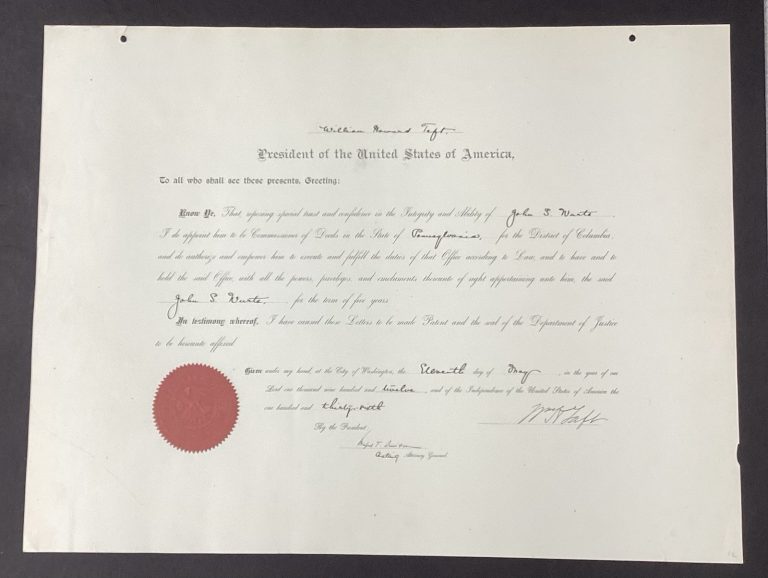 William Howard Taft.
President of the United States of America,
To all who shall see these presents, Greeting:
Know Ye, That, reposing special trust and confidence in the Integrity and Ability of John S. Wurts
I do appoint him to be Commissioner of Deeds in the State of Pennsylvania, for the District of Columbia,
and do authorize and empower him to execute and fulfill the duties of that Office according to Law, and to have and to
hold the said Office, with all the powers, privileges, and emoluments thereunto of right appertaining unto him, the said
John S. Wurts, for the term of five years
In testimony whereof, I have caused these Letters to be made Patent and the seal of the Department of Justice
to be hereunto affixed
Given under my hand, at the City of Washington, the Eleventh day of May, in the year of our
Lord one thousand nine hundred and twelve, and of the Independence of the United States of America the
one hundred and thirty-sixth
Wm H Taft
By the President,
Acting Attorney General.